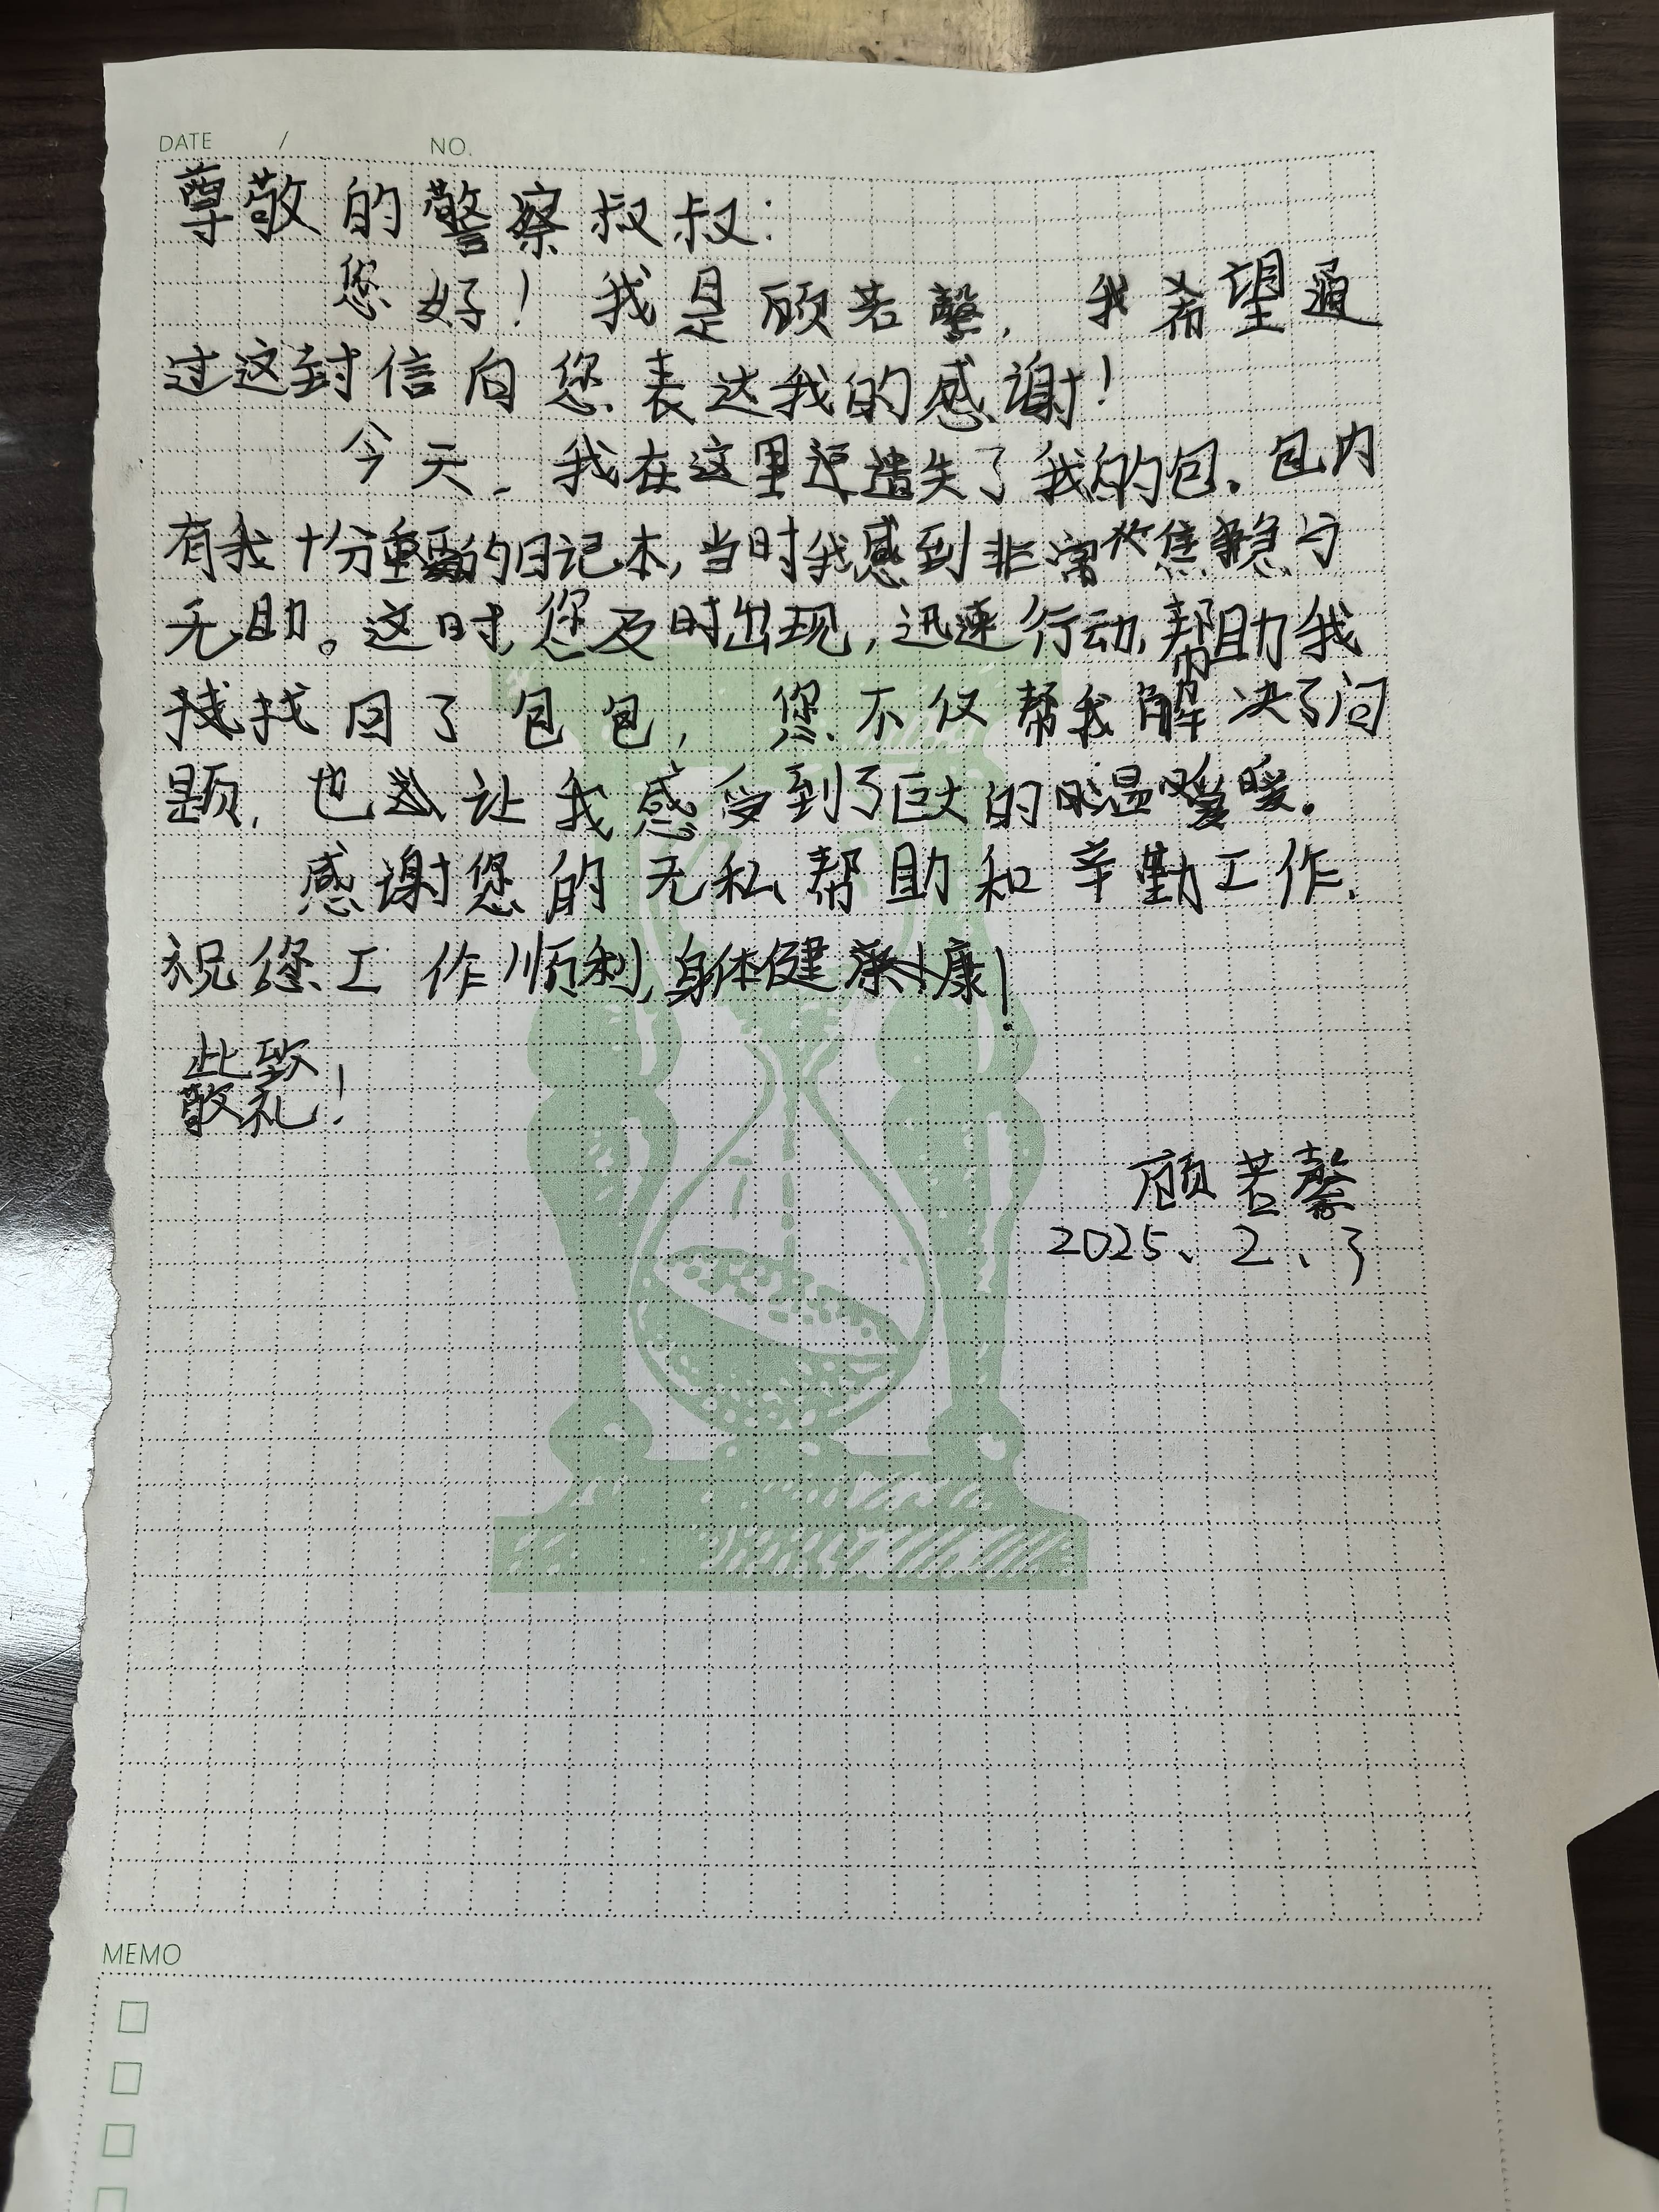 DATE / NO.
尊敬的警察叔叔:
您好!我是顾若馨,我希望通
过这封信向您表达我的感谢!
今天,我在这里遗失了我的包。包内
有我十分重要的日记本,当时我感到非常焦急与
无助。这时,您及时出现,迅速行动,帮助我
找回了包包,您不仅帮我解决了问
题,也让我感受到了巨大的温暖。
感谢您的无私帮助和辛勤工作.
祝您工作顺利,身体健康!
此致
敬礼!
顾若馨
2025、2、3
MEMO